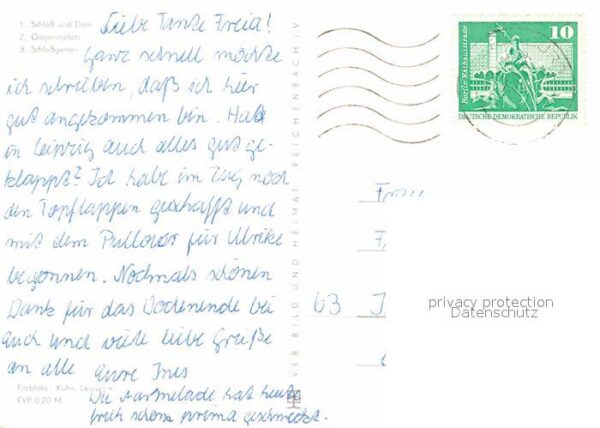 1 Schloß und Dom
2 Gagarinplatz
3 Schloßgarten
Liebe Tante Freia!
Ganz schnell möchte
ich schreiben, daß ich hier
gut angekommen bin. Hat
in Leipzig auch alles gut ge-
klappt? Ich habe im Zug noch
den Topflappen geschafft und
mit dem Pullover für Ulrike
begonnen. Nochmals schönen
Dank für das Wochenende bei
euch und viele liebe Grüße
an alle Eure Ines
Die Marmelade hat heute
früh schon prima geschmeckt.
Farbfoto: Kühn, Leipzig
EVP 0.20 M
VEB BILD UND HEIMAT REICHENBACH I.V.
10
Berlin-Rathausstraße
DEUTSCHE DEMOKRATISCHE REPUBLIK
63
privacy protection
Datenschutz